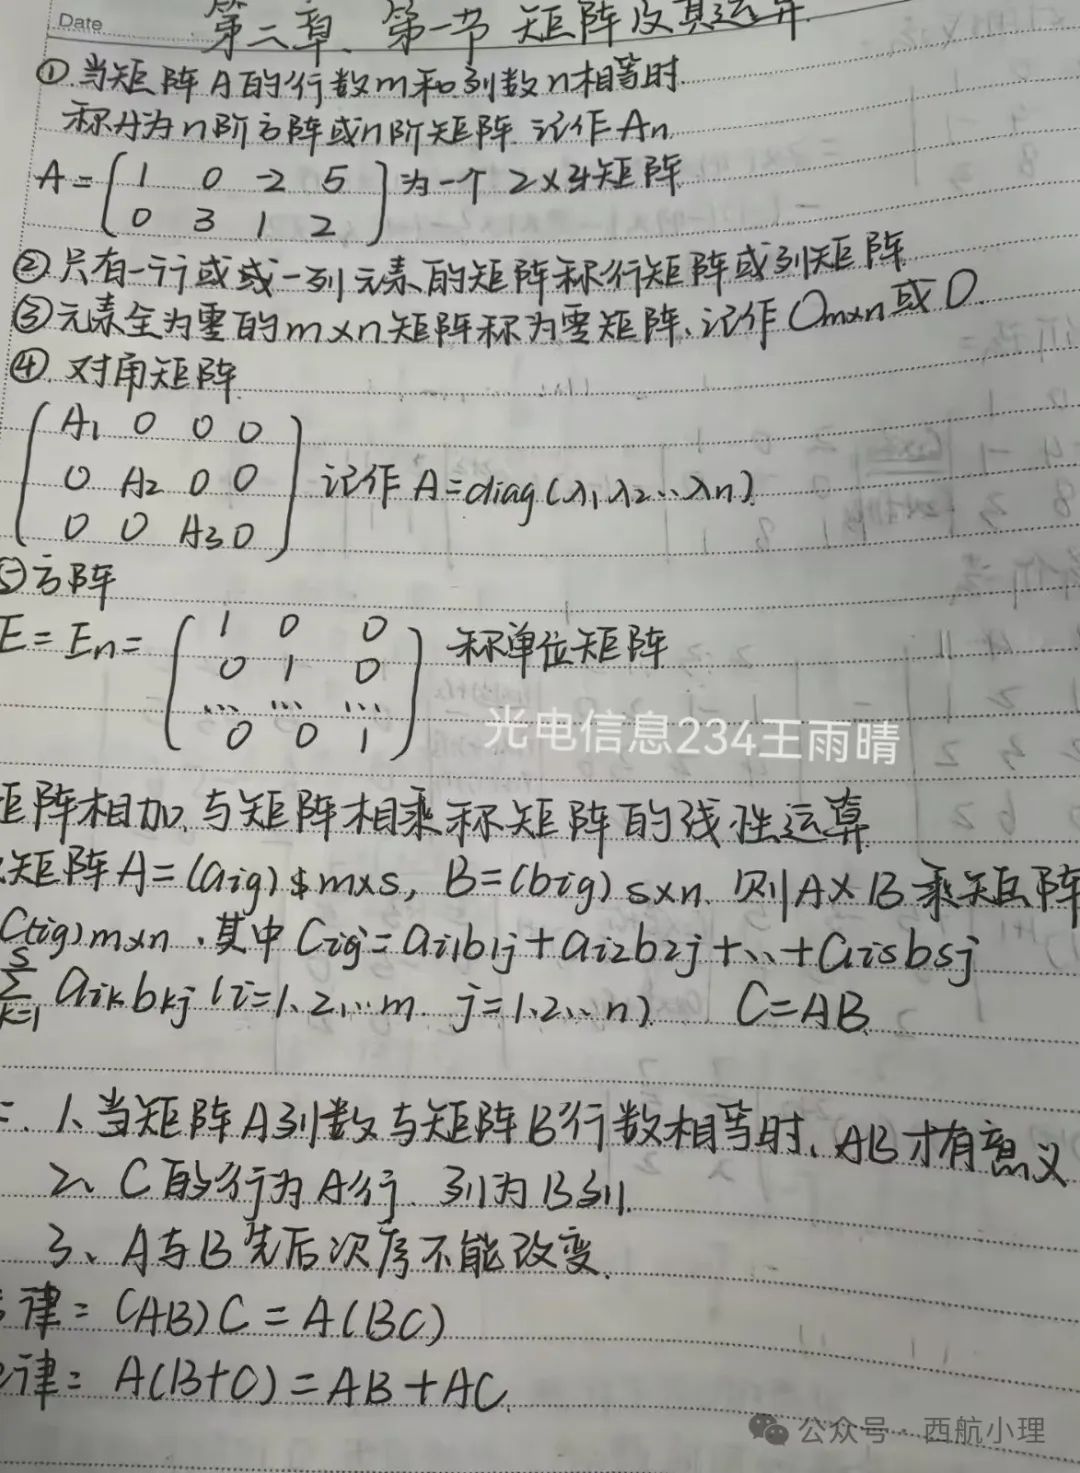 Date
第二章、第一节 矩阵及其运算
①当矩阵A的行数m和列数n相等时.
称A为n阶方阵或n阶矩阵 记作An
A=(1 0 -2 5
0 3 1 2) 为一个 2×4矩阵
②只有一行或或一列元素的矩阵称行矩阵或列矩阵
③元素全为零的m×n矩阵称为零矩阵、记作Om×n或O.
④. 对角矩阵
(A1 0 0 0
0 A2 0 0
0 0 A3 0) 记作 A=diag(λ1,λ2...λn)
⑤方阵
E=En=(1 0 0
0 1 0
... ... ...
0 0 1) 称单位矩阵
光电信息234王雨晴
矩阵相加、与矩阵相乘称矩阵的线性运算
矩阵A=(aig)m×s, B=(big)s×n. 则A×B乘矩阵
C(ig)m×n.其中Cig=ai1b1j+ai2b2j+...+aisbsj
s∑k=1 aikbkj (i=1、2,...m. j=1、2...n) C=AB.
1、当矩阵A列数与矩阵B行数相等时、AB才有意义
2、C的行为A行、列为B列.
3、A与B先后次序不能改变.
律: (AB)C=A(BC)
律: A(B+C)=AB+AC.
公众号·西航小理